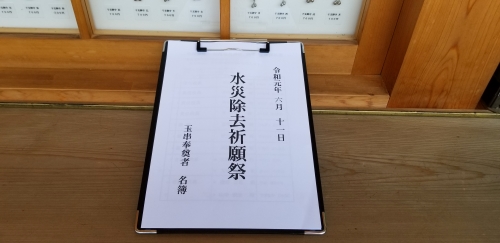 令和元年 六月 十一日
水災除去祈願祭
玉串奉奠者 名簿